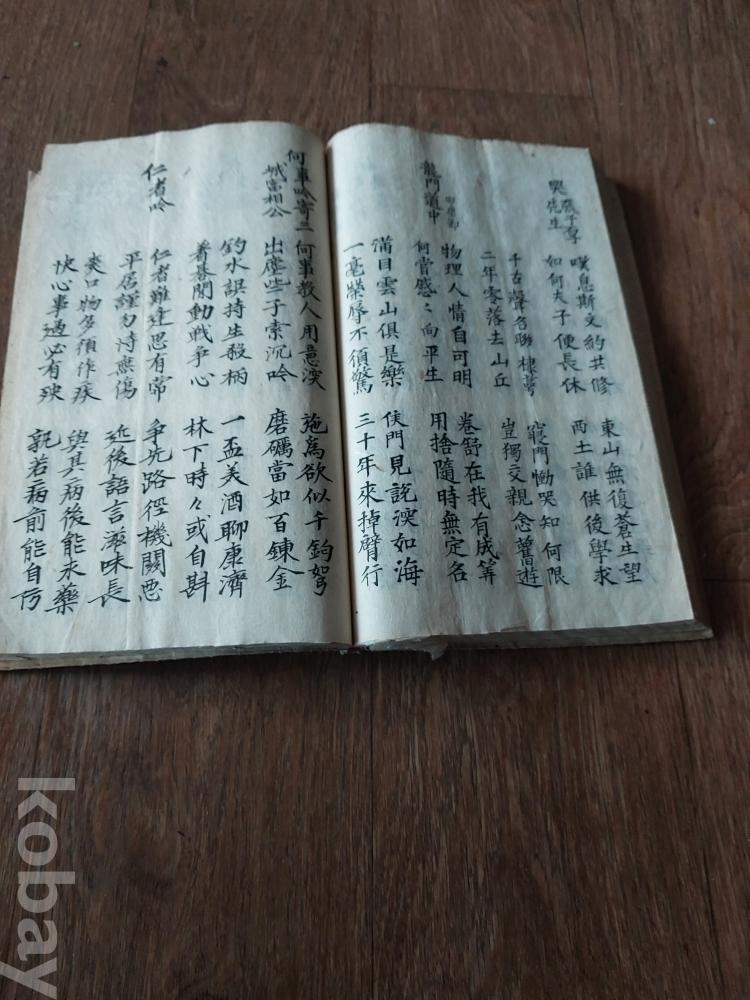 哭張子厚
先生
嘆息斯文約共修 東山無復蒼生望
如何夫子便長休 西土誰供後學求
千古聲名聯棣萼 寢門慟哭知何限
二年零落去山丘 豈獨交親念舊遊
龍門道中 邵康節
物理人情自可明 卷舒在我有成筭
何嘗感〻向平生 用捨隨時無定名
滿目雲山俱是樂 侯門見說深如海
一毫榮辱不須驚 三十年來掉臂行
何事吟寄三
城富相公
何事教人用意深 施爲欲似千鈞弩
出塵些子索沉吟 磨礪當如百鍊金
釣水誤持生殺柄 一盃美酒聊康濟
着碁閒動戰爭心 林下時々或自斟
仁者吟
仁者難逢思有常 爭先路徑機關惡
平居謹勿恃無傷 近後語言滋味長
爽口物多須作疾 與其病後能求藥
快心事過必有殃 孰若病前能自防
kobay